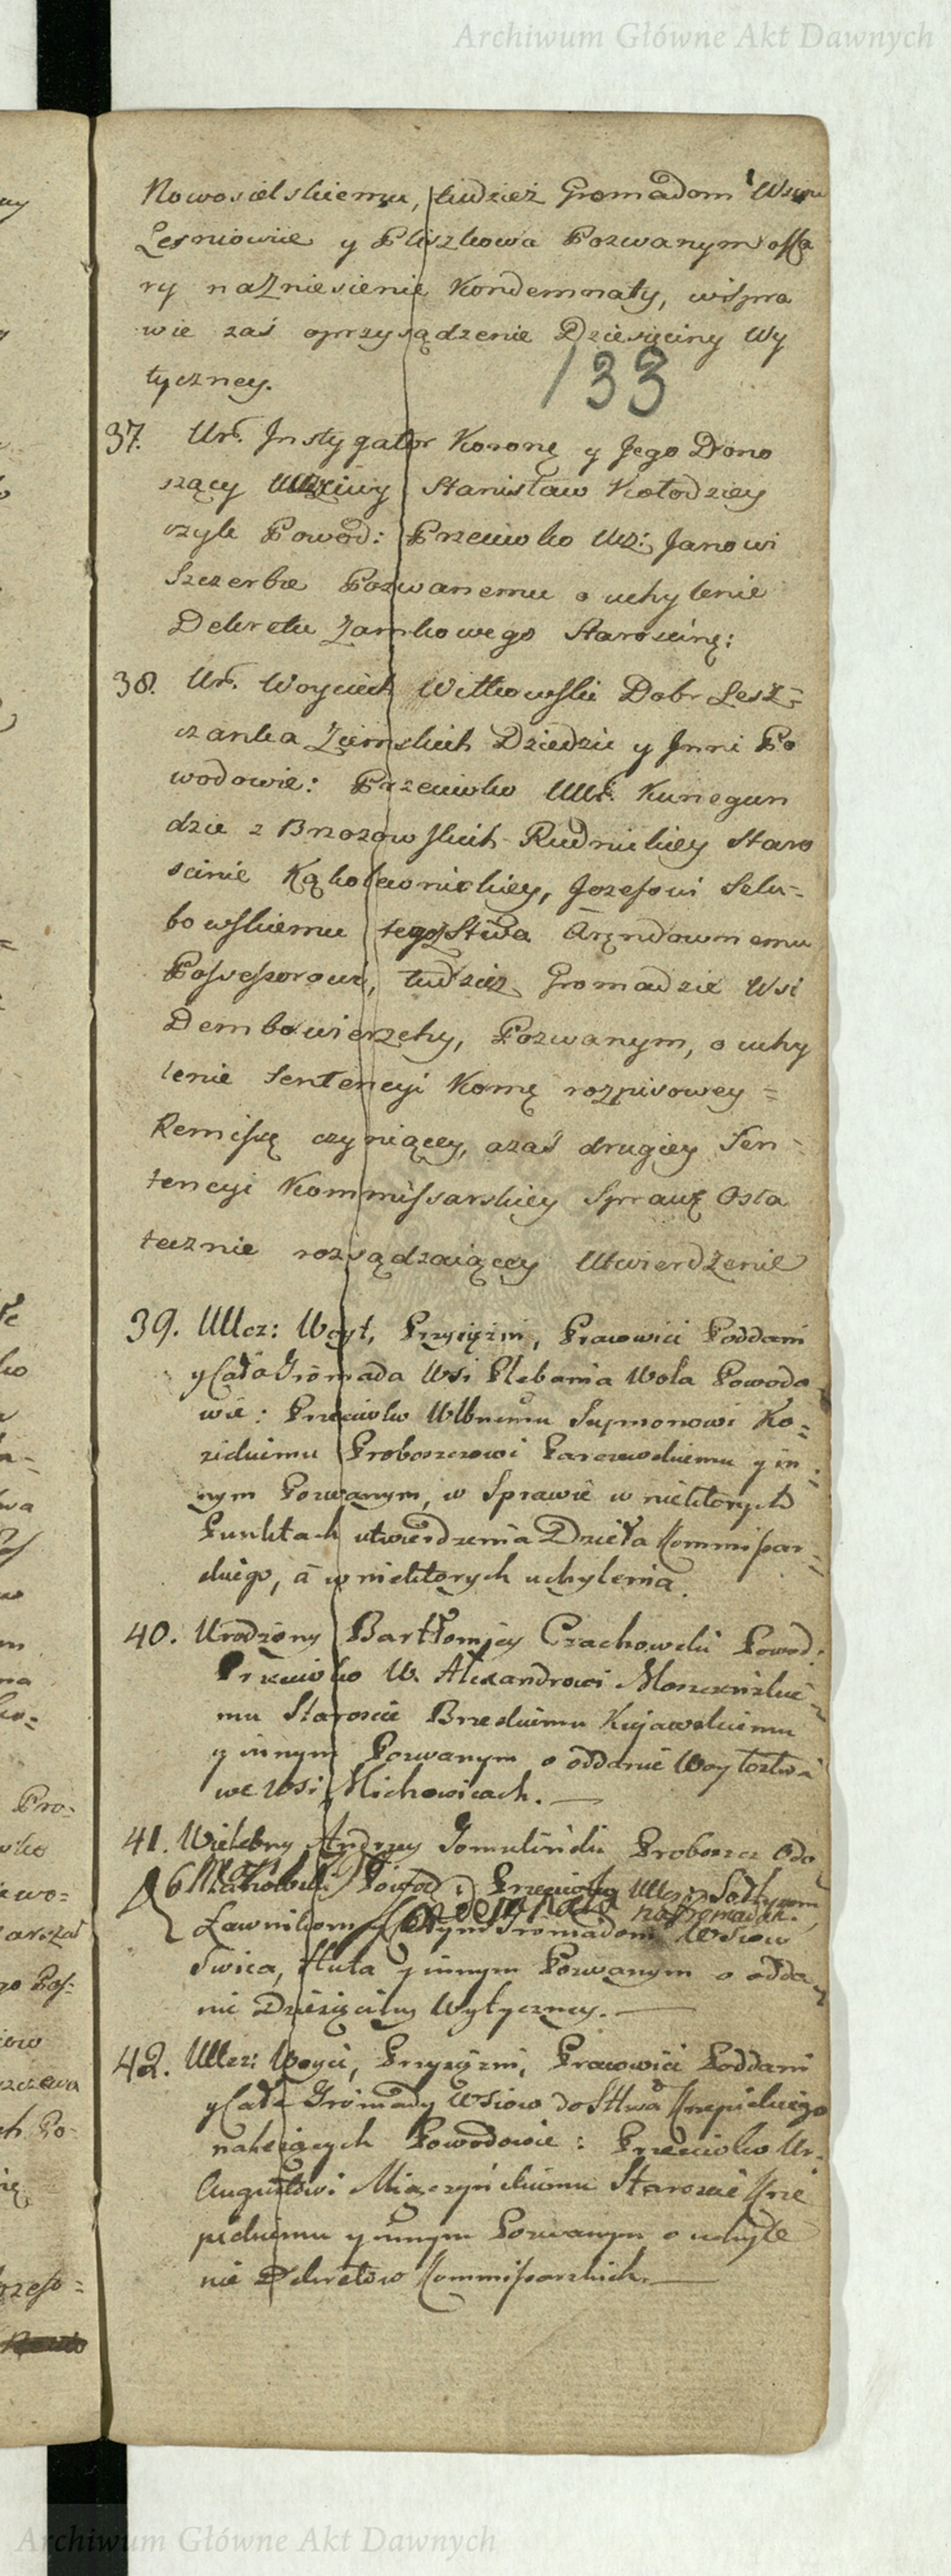 Archiwum Główne Akt Dawnych
Nowosielskiemu, tudzież Gromadom Wsiow
Lesniowie y Pliszkowa Pozwanym offia
ry na Zniesienie Kondemnaty, wspra
wie zaś oprzysądzenie Dziesięciny Wy
tyczney.
133
37. Ur. Instygator Koronę y Jego Dono
szący Uczciwy Stanisław Kołodziey
czyk Powod: Przeciwko Ucz: Janowi
Szczerbie Pozwanemu o uchylenie
Dekretu Zamkowego Starościnę:
38. Ur. Woyciech Witkowski Dobr Lesz=
czanka Ziemskich Dziedzic y Inni Po
wodowie: Przeciwko UUr. Kunegun
dzie z Brzozowskich Rudnickiey Staro
scinie Kąkolewnickiey, Jozefowi Selu=
bowskiemu tegoż Stwa Arendownemu
Possessorowi, tudzież Gromadzie Wsi
Dembowierzchy, Pozwanym, o uchy
lenie Sentencyi Komę rozpisowey =
Remissę czyniącey, azaś drugiey Sen=
tencyi Kommissarskiey Sprawę Osta
tecznie rozsądzaiącey Utwierdzenie
39. UUcz: Woyt, Przysięzni, Prawowici Poddani
y Cała Gromada Wsi Plebania Wola Powodo
wie: Przeciwko Wlbnemu Szymonowi Ko=
zickiemu Proboszczowi Parczewskiemu y in=
nym Pozwanym, w Sprawie w niektorych
Punktach utwierdzenia Dzieła Kommissar=
skiego, a w niektorych uchylenia.
40. Urodzony Bartłomiey Czachowski Powod:
Przeciwko W. Alexandrowi Moszczinskie=
mu Staroscie Brzeskiemu Kujawskiemu
y innym Pozwanym o oddanie Woytostwa
we Wsi Michowicach.
41. Wielebny Andrzey Gomuliński Proboszcz Odo
Powod: Przeciwko UUcz: Sołtysom
Ławnikom y Całym Gromadom Wsiow
Swica, Huta y innym Pozwanym o odda=
nie Dziesięciny Wytyczney.
42. UUcz: Woyci, Przysięzni, Prawowici Poddani
y Całe Gromady Wsiow do Sttwa Krzepickiego
należących Powodowie: Przeciwko Ur.
Augustowi Miączyńskiemu Staroscie Krze
pickiemu y innym Pozwanym o uchyle
nie Dekretow Kommissarskich.
Archiwum Główne Akt Dawnych